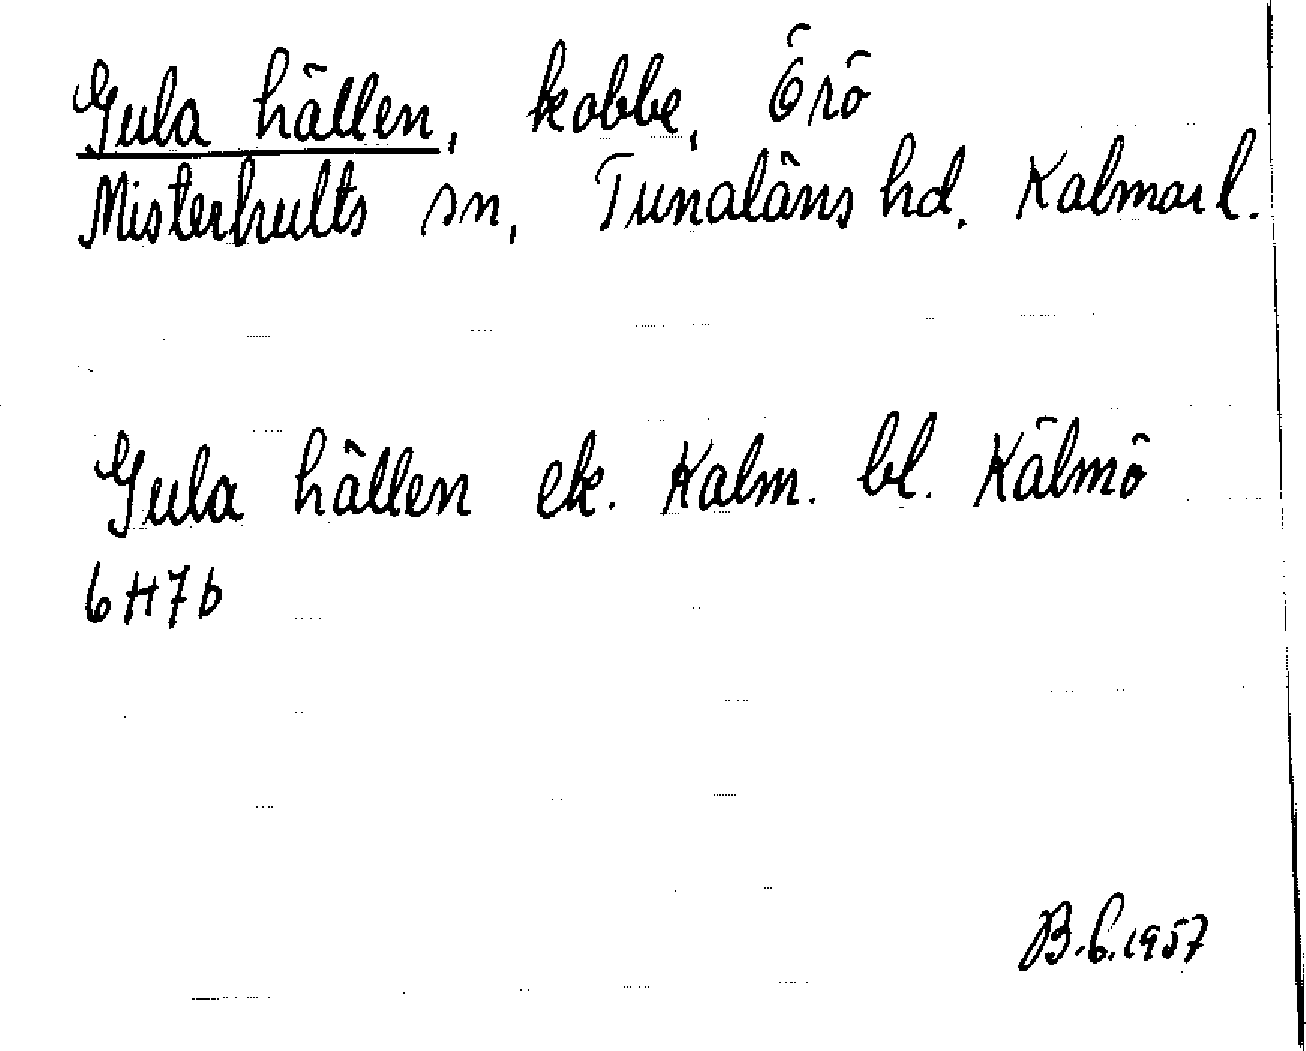 Gula hällen, kobbe, Örö
Misterhults sn, Tunaläns hd. Kalmar l.
Gula hällen ek. Kalm. bl. Kälmö
6H7b
B.C.1957